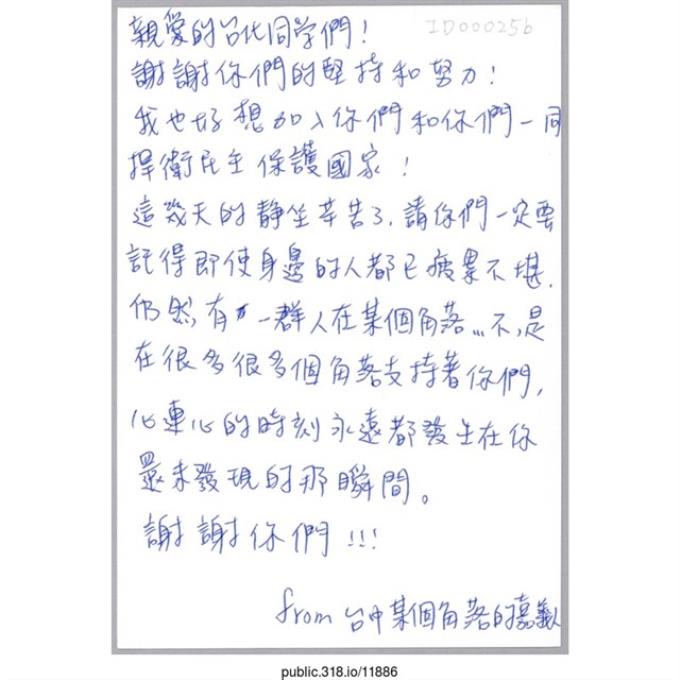 ID000256
親愛的台北同学們！
謝謝你們的堅持和努力！
我也好想加入你們和你們一同
捍衛民主保護國家！
這幾天的静坐辛苦了，請你們一定要
記得即使身邊的人都已疲累不堪，
仍然有一群人在某個角落...不，是
在很多很多個角落支持著你們，
心連心的時刻永遠都發生在你
還未發現的那瞬間。
謝謝你們!!!
from 台中某個角落的嘉義人
public.318.io/11886